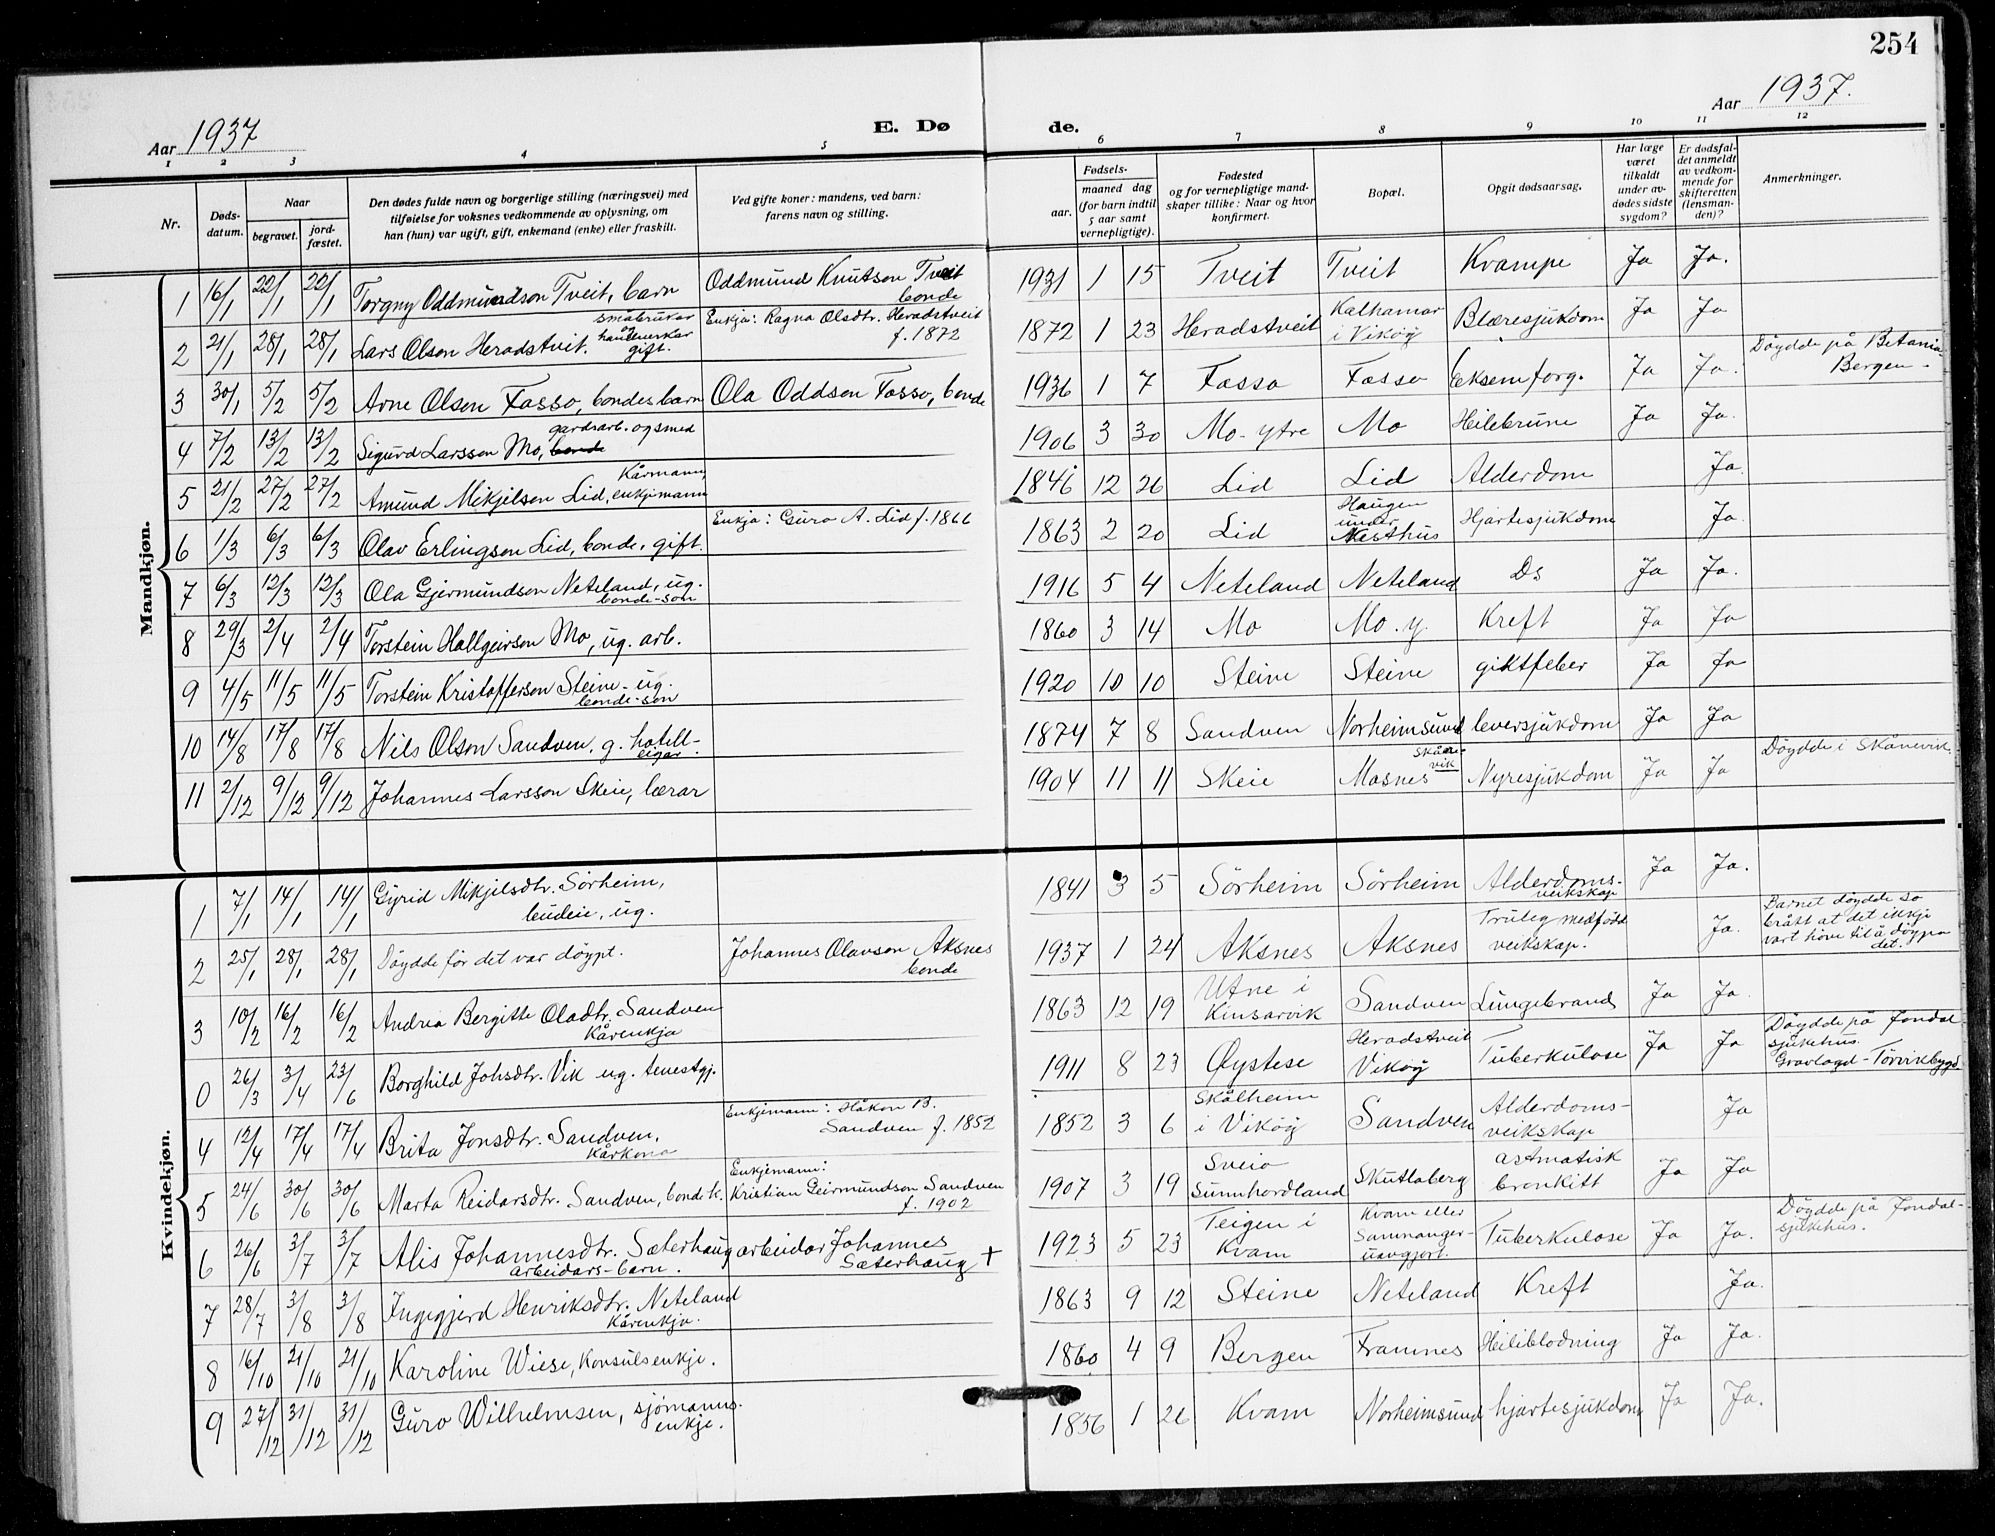 254
Aar 1937
E. Dø
de.
Aar 1937.
1 2 3 4 5 6 7 8 9 10 11 12
Nr.
Døds-
datum.
Naar
begravet.
jord-
fæstet.
Den dødes fulde navn og borgerlige stilling (næringsvei) med
tilføielse for voksnes vedkommende av oplysning, om
han (hun) var ugift, gift, enkemand (enke) eller fraskilt.
Ved gifte koner: mandens, ved barn:
farens navn og stilling.
Fødsels-
aar.
maaned dag
(for barn indtil
5 aar samt
vernepligtige).
Fødested
og for vernepligtige mand-
skaper tillike: Naar og hvor
konfirmert.
Bopæl.
Opgit dødsaarsag.
Har læge
været
tilkaldt
under av-
dødes sidste
sygdom?
Er dødsfal-
det anmeldt
av vedkom-
mende for
skifteretten
(lensman-
den)?
Anmerkninger.
Mandkjøn.
1 16/1 22/1 22/1 Torgny Oddmundson Tveit, barn Oddmund Knutson Tveit bonde 1931 1 15 Tveit Tveit Krampe Ja Ja.
2 21/1 28/1 28/1 Lars Olson Heradstveit. småbrukar og handverkar gift. Enkja: Ragna Olsdtr. Heradstveit f. 1872 1872 1 23 Heradstveit Kalhamar i Vikøy Blæresjukdom Ja Ja
3 30/1 5/2 5/2 Arne Olsen Fosso, bondesbarn Ola Oddson Fosso, bonde 1936 1 7 Fosso Fosso Eksemforg. Ja Ja. Döydde på Betania Bergen.
4 7/2 13/2 13/2 Sigurd Larsson Mo, bonde gardsarb. og smed 1906 3 30 Mo-ytre Mo Heilebrune Ja Ja.
5 21/2 27/2 27/2 Amund Mikjelson Lid, enkjemann Kårmann, 1846 12 26 Lid Lid Alderdom Ja.
6 1/3 6/3 6/3 Olav Erlingson Lid, bonde, gift. Enkja: Guro A. Lid f. 1866 1863 2 20 Lid Haugen under Nesthus Hjartesjukdom Ja.
7 6/3 12/3 12/3 Ola Gjermundson Neteland, ug. bonde-son 1916 5 4 Neteland Neteland Ds Ja Ja.
8 29/3 2/4 2/4 Torstein Hallgeirson Mo, ug. arb. 1860 3 14 Mo Mo. y. Kreft Ja Ja
9 4/5 11/5 11/5 Torstein Kristofferson Steine - ug. bonde-son 1920 10 10 Steine Steine giktfeber Ja Ja
10 14/8 17/8 17/8 Nils Olson Sandven, g. hotell-eigar. 1874 7 8 Sandven Norheimsund leversjukdom Ja Ja
11 2/12 9/12 9/12 Johannes Larsson Skeie, lærar 1904 11 11 Skeie Mosnes Skånevik Nyresjukdom Ja Ja Döydde i Skånevik.
Kvindekjøn.
1 7/1 14/1 14/1 Gyrid Mikjelsdtr. Sörheim, budeie, ug. 1841 3 5 Sörheim Sörheim Alderdoms-veikskap Ja Ja.
2 25/1 28/1 28/1 Döydde för det var döypt. Johannes Olavson Aksnes bonde 1937 1 24 Aksnes Aksnes Truleg medfödd veikskap. Ja. Barnet döydde so brått at det ikkje vart höve til å döypa det.
3 10/2 16/2 16/2 Andrea Bergitte Oladtr. Sandven Kårenkja 1863 12 19 Utne i Kinsarvik Sandven Lungebrand Ja Ja.
0 26/3 3/4 23/6 Borghild Johsdtr. Vik ug. tenestgj. 1911 8 23 Øystese Heradstveit Vikøy Tuberkulose Ja Ja Döydde på Jondal sjukehus. Gravlagd - Törvikbygd
4 12/4 17/4 17/4 Brita Jonsdtr. Sandven, Kårkona Enkjemann: Håkon B. Sandven f. 1852 1852 3 6 Skålheim i Vikøy Sandven Alderdoms-veikskap Ja
5 24/6 30/6 30/6 Marta Reidarsdtr. Sandven, bonde k. Enkjemann: Kristian Geirmundson Sandven f. 1902 1907 3 19 Sveio Sunnhordland Skutlaberg astmatisk bronkitt Ja Ja
6 26/6 3/7 3/7 Alis Johannesdtr. Sæterhaug arbeidars-barn. arbeidar Johannes Sæterhaug + 1923 5 23 Teigen i Kvam Kvam eller Samnanger-uavgjort. Tuberkulose Ja Ja. Döydde på Jondal-sjukehus.
7 28/7 3/8 3/8 Ingegjerd Henriksdtr. Neteland Kårenkja. 1863 9 12 Steine Neteland Kreft Ja.
8 16/10 21/10 21/10 Karoline Wiese, Konsulsenkje. 1860 4 9 Bergen Framnes Heiliblödning Ja Ja.
9 27/12 31/12 31/12 Guro Wilhelmsen, sjömanns-enkje. 1856 1 26 Kvam Norheimsund hjartesjukdom Ja Ja.